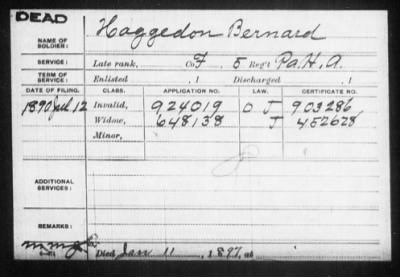 DEAD
NAME OF SOLDIER: Haggedon Bernard
SERVICE: Late rank, Co F. 5 Reg't Pa. H. A.
TERM OF SERVICE: Enlisted , 1 Discharged , 1
DATE OF FILING. CLASS. APPLICATION NO. LAW. CERTIFICATE NO.
1890 Jul 12 Invalid, 924019 O J 903286
Widow, 648138 J 452628
Minor,
ADDITIONAL SERVICES:
REMARKS:
Died Jan 11, 1897, at